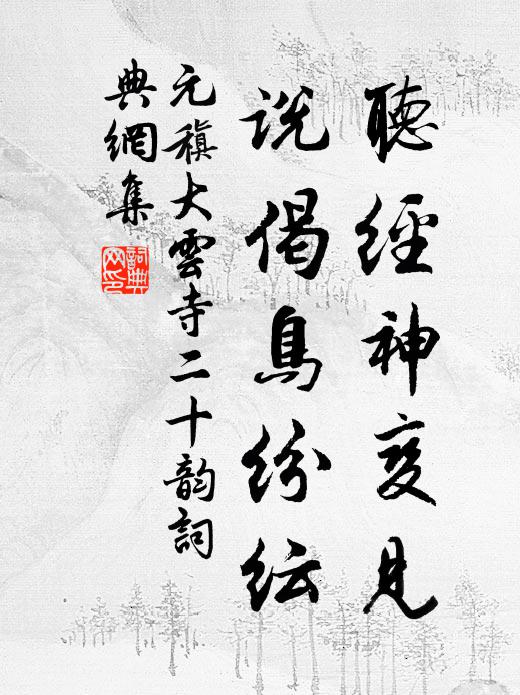 聽經神變見
說偈鳥紛紜
元稹大雲寺二十韵詞
典網集
詞典網印